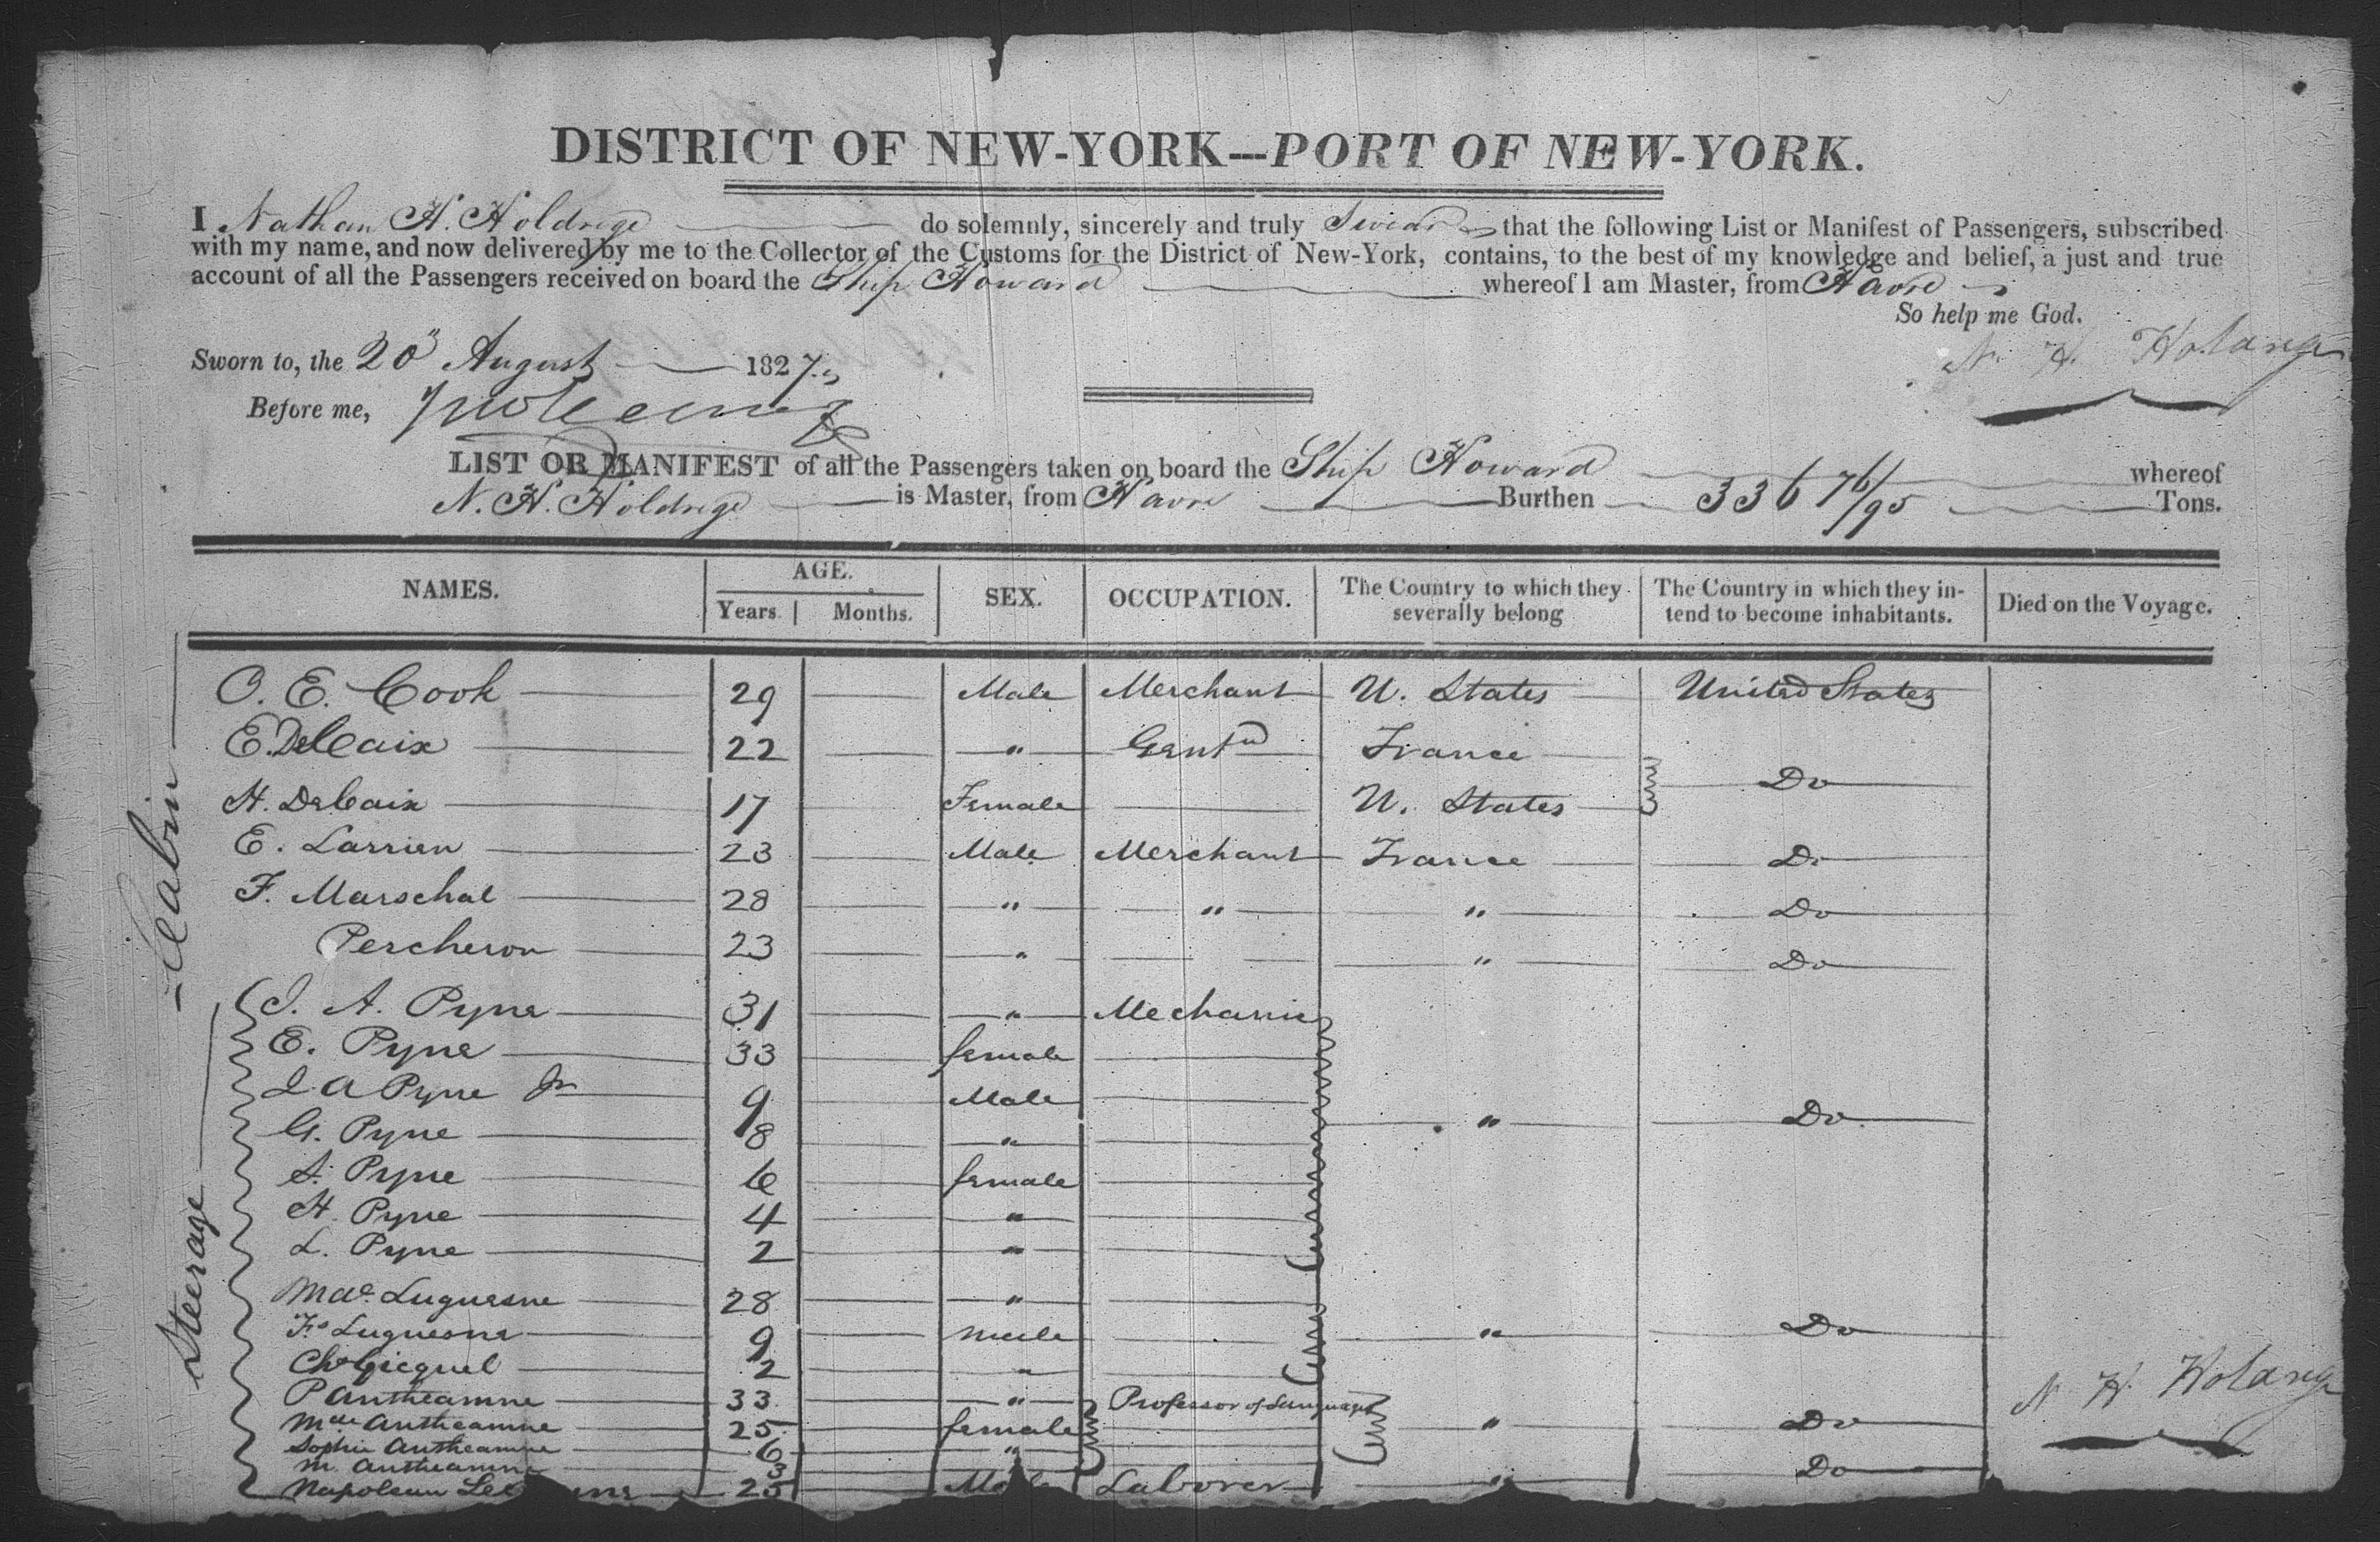 DISTRICT OF NEW-YORK---PORT OF NEW-YORK.
I Nathan H. Holdrege do solemnly, sincerely and truly Swear that the following List or Manifest of Passengers, subscribed
with my name, and now delivered by me to the Collector of the Customs for the District of New-York, contains, to the best of my knowledge and belief, a just and true
account of all the Passengers received on board the Ship Howard whereof I am Master, from Havre
So help me God.
Sworn to, the 20 August 1827
N. H. Holdrege
Before me,
LIST OR MANIFEST of all the Passengers taken on board the Ship Howard whereof
N. H. Holdrege is Master, from Havre Burthen 336 76/95 Tons.
NAMES. AGE. Years. Months. SEX. OCCUPATION. The Country to which they severally belong The Country in which they intend to become inhabitants. Died on the Voyage.
Cabin
O. E. Cook 29 Male Merchant U. States United States
E. DeCaix 22 " Gentn France
Do
H. DeCaix 17 Female U. States
E. Larrieu 23 Male Merchant France Do
F. Marschal 28 " " " Do
Percheron 23 " " Do
Steerage
J. A. Pyne 31 " Mechanic
E. Pyne 33 female
J A Pyne Jr 9 Male
" Do
G. Pyne 8 "
S. Pyne 6 female
H. Pyne 4 "
L. Pyne 2 "
Mde. Luquesne 28 "
Fs Luquesne 9 male " Do
Chs Gicquel 2 "
P Antheamne 33 " Professor of Languages
Mde Antheamne 25 female " Do
Sophie Antheamne 6 "
M. Antheamne 3 " Do
Napoleon 25 Male Laborer "
N. H. Holdrege